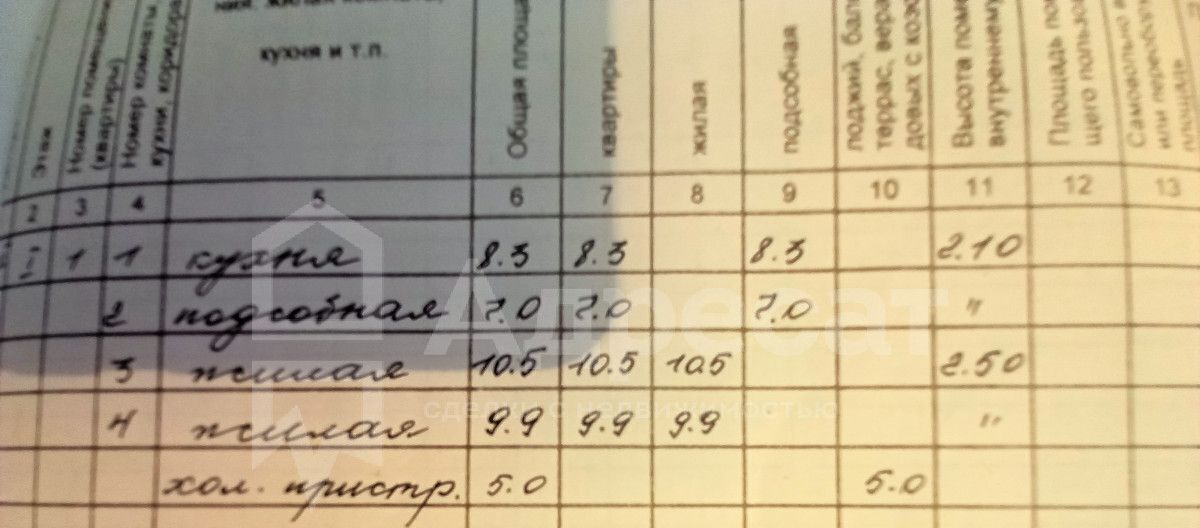 кухня и т.п.
Этаж
Номер помещения
(квартиры)
Номер комнаты,
кухни, коридора
Общая площа
квартиры
жилая
подсобная
лоджий, бал
террас, вера
довых с коэф
Высота поме
внутреннему
Площадь по
щего пользо
Самовольно
или переобор
площадь
2 3 4 5 6 7 8 9 10 11 12 13
I 1 1 кухня 8.3 8.3 8.3 2.10
2 подсобная 7.0 7.0 7.0 "
3 жилая 10.5 10.5 10.5 2.50
4 жилая 9.9 9.9 9.9 "
хол. пристр. 5.0 5.0
Адресат
сделки с недвижимостью